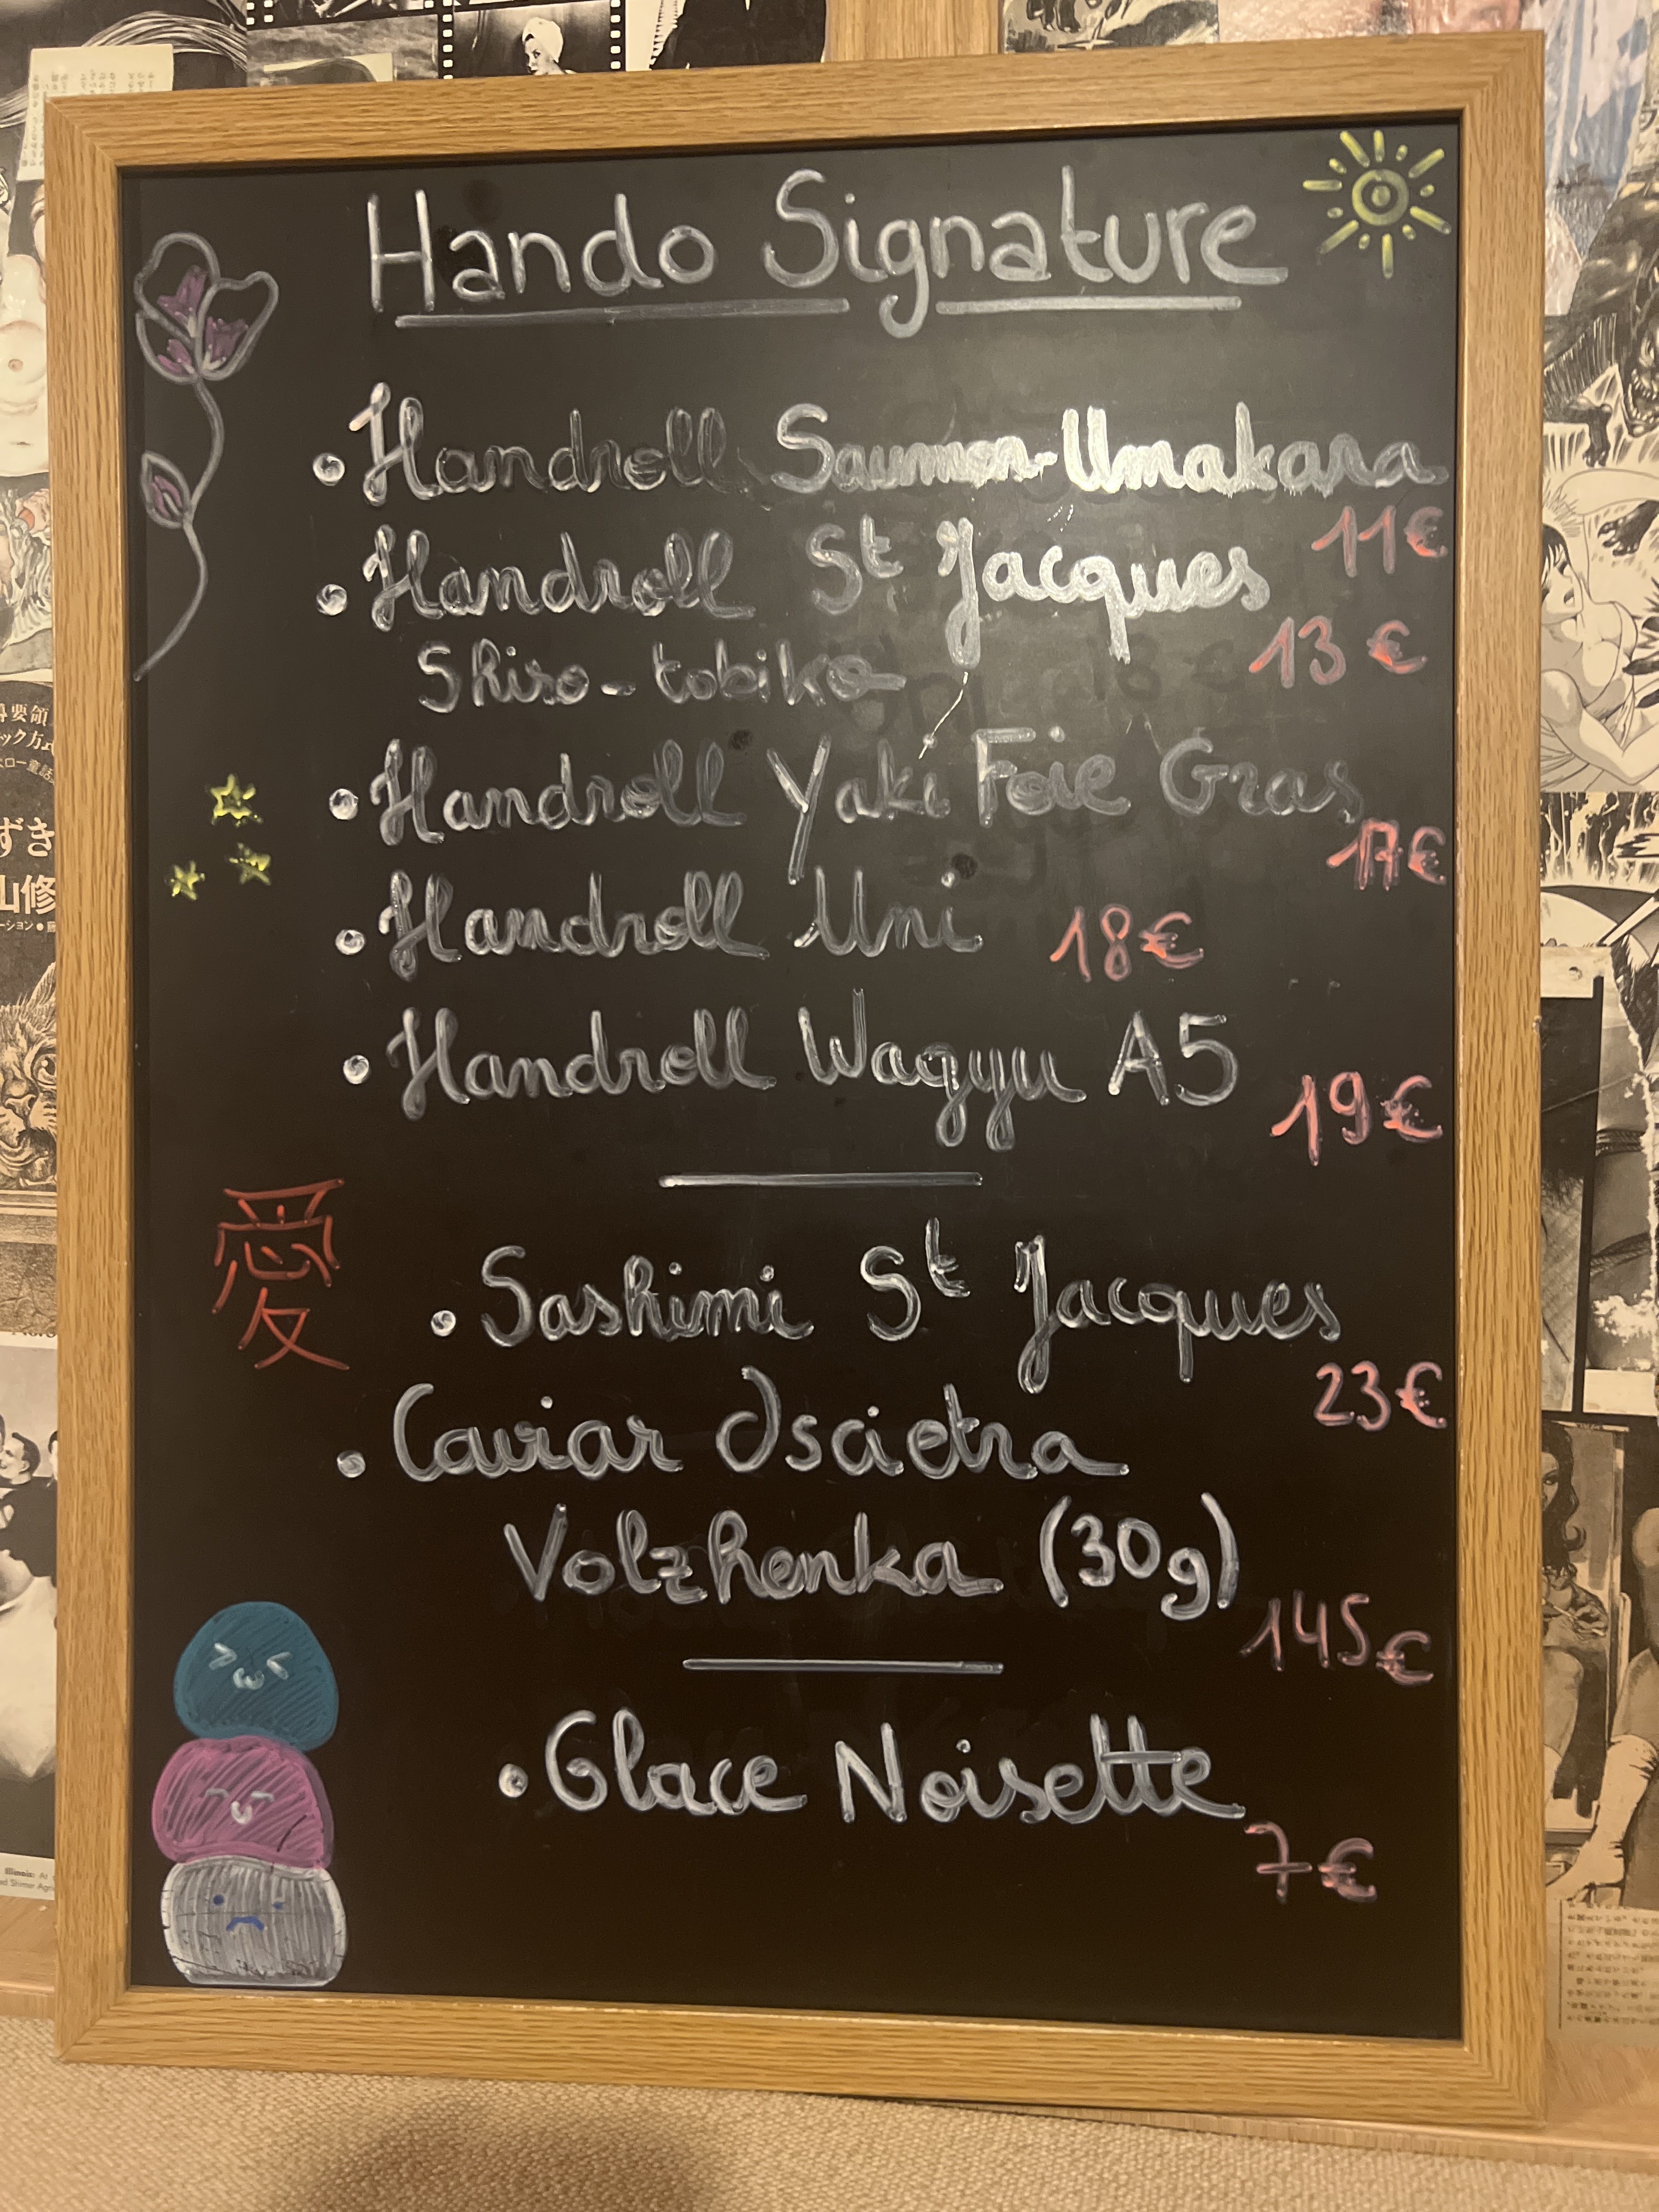 Hando Signature
• Handroll Saumon-Umakara
11€
• Handroll St Jacques
Shiso-tobiko
13€
• Handroll Yaki Foie Gras
17€
• Handroll Uni 18€
• Handroll Wagyu A5
19€
愛
• Sashimi St Jacques
23€
• Caviar Oscietra
Volzhenka (30g)
145€
• Glace Noisette
7€
導要領
ずき
山修
Illinois: